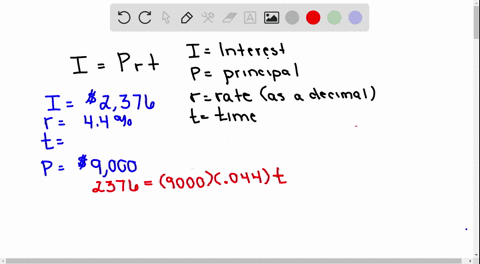 I = Prt
I = Interest
P = principal
r = rate (as a decimal)
t = time
I = $2,376
r = 4.4%
t =
P = $9,000
2376 = (9000)(.044) t